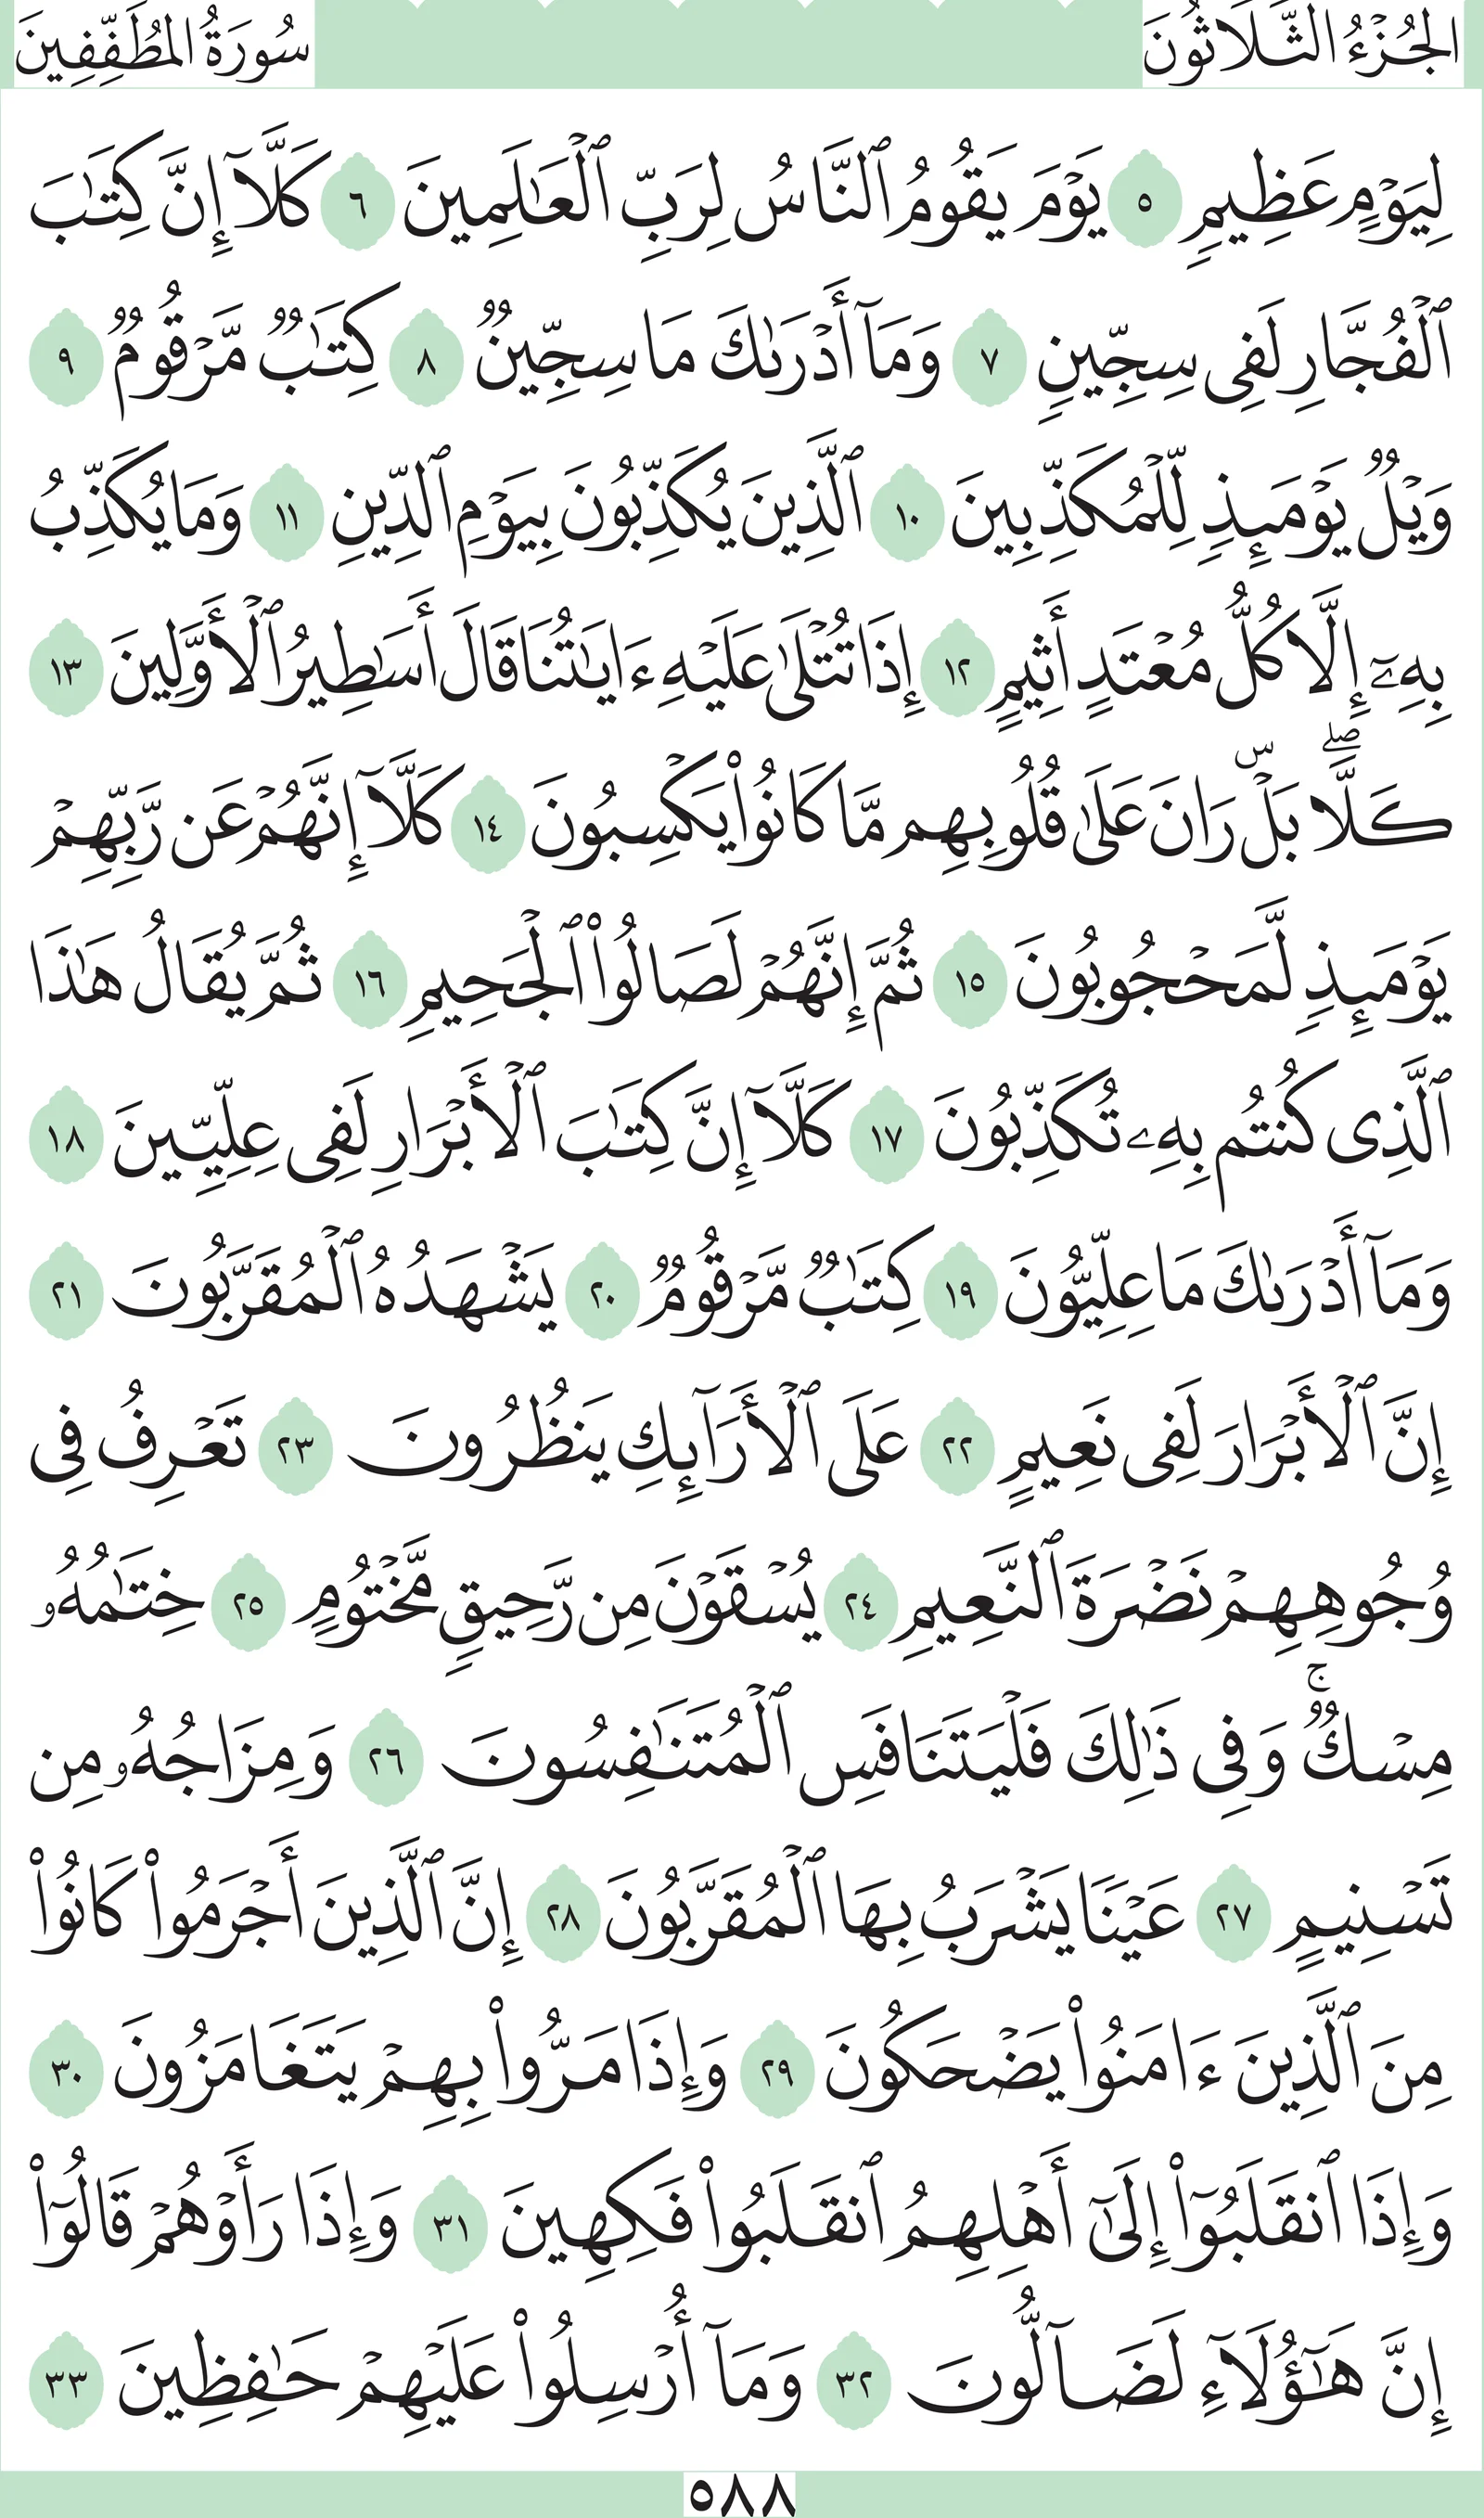 الجُزْءُ الثَّلَاثُونَ
سُورَةُ المُطَفِّفِينَ
لِيَوْمٍ عَظِيمٍ ٥ يَوْمَ يَقُومُ ٱلنَّاسُ لِرَبِّ ٱلْعَـٰلَمِينَ ٦ كَلَّآ إِنَّ كِتَـٰبَ
ٱلْفُجَّارِ لَفِى سِجِّينٍ ٧ وَمَآ أَدْرَىٰكَ مَا سِجِّينٌ ٨ كِتَـٰبٌ مَّرْقُومٌ ٩
وَيْلٌ يَوْمَئِذٍ لِّلْمُكَذِّبِينَ ١٠ ٱلَّذِينَ يُكَذِّبُونَ بِيَوْمِ ٱلدِّينِ ١١ وَمَا يُكَذِّبُ
بِهِۦٓ إِلَّا كُلُّ مُعْتَدٍ أَثِيمٍ ١٢ إِذَا تُتْلَىٰ عَلَيْهِ ءَايَـٰتُنَا قَالَ أَسَـٰطِيرُ ٱلْأَوَّلِينَ ١٣
كَلَّا ۖ بَلْ ۜ رَانَ عَلَىٰ قُلُوبِهِم مَّا كَانُوا۟ يَكْسِبُونَ ١٤ كَلَّآ إِنَّهُمْ عَن رَّبِّهِمْ
يَوْمَئِذٍ لَّمَحْجُوبُونَ ١٥ ثُمَّ إِنَّهُمْ لَصَالُوا۟ ٱلْجَحِيمِ ١٦ ثُمَّ يُقَالُ هَـٰذَا
ٱلَّذِى كُنتُم بِهِۦ تُكَذِّبُونَ ١٧ كَلَّآ إِنَّ كِتَـٰبَ ٱلْأَبْرَارِ لَفِى عِلِّيِّينَ ١٨
وَمَآ أَدْرَىٰكَ مَا عِلِّيُّونَ ١٩ كِتَـٰبٌ مَّرْقُومٌ ٢٠ يَشْهَدُهُ ٱلْمُقَرَّبُونَ ٢١
إِنَّ ٱلْأَبْرَارَ لَفِى نَعِيمٍ ٢٢ عَلَى ٱلْأَرَآئِكِ يَنظُرُونَ ٢٣ تَعْرِفُ فِى
وُجُوهِهِمْ نَضْرَةَ ٱلنَّعِيمِ ٢٤ يُسْقَوْنَ مِن رَّحِيقٍ مَّخْتُومٍ ٢٥ خِتَـٰمُهُۥ
مِسْكٌ ۚ وَفِى ذَٰلِكَ فَلْيَتَنَافَسِ ٱلْمُتَنَـٰفِسُونَ ٢٦ وَمِزَاجُهُۥ مِن
تَسْنِيمٍ ٢٧ عَيْنًا يَشْرَبُ بِهَا ٱلْمُقَرَّبُونَ ٢٨ إِنَّ ٱلَّذِينَ أَجْرَمُوا۟ كَانُوا۟
مِنَ ٱلَّذِينَ ءَامَنُوا۟ يَضْحَكُونَ ٢٩ وَإِذَا مَرُّوا۟ بِهِمْ يَتَغَامَزُونَ ٣٠
وَإِذَا ٱنقَلَبُوٓا۟ إِلَىٰٓ أَهْلِهِمُ ٱنقَلَبُوا۟ فَكِهِينَ ٣١ وَإِذَا رَأَوْهُمْ قَالُوٓا۟
إِنَّ هَـٰٓؤُلَآءِ لَضَآلُّونَ ٣٢ وَمَآ أُرْسِلُوا۟ عَلَيْهِمْ حَـٰفِظِينَ ٣٣
٥٨٨